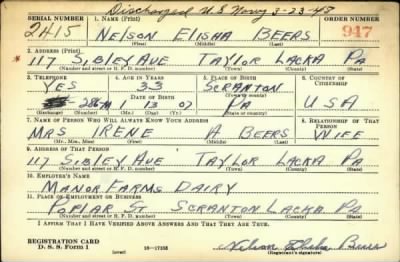 Discharged U.S. Navy 3-23-43
SERIAL NUMBER 1. NAME (Print) ORDER NUMBER
2415 NELSON ELISHA BEERS 947
(First) (Middle) (Last)
2. ADDRESS (Print)
117 SIBLEY AVE TAYLOR LACKA PA
(Number and street or R. F. D. number) (Town) (County) (State)
3. TELEPHONE 4. AGE IN YEARS 5. PLACE OF BIRTH 6. COUNTRY OF CITIZENSHIP
YES 33 SCRANTON
DATE OF BIRTH
286M 1 13 07 PA USA
(Exchange) (Number) (Mo.) (Day) (Yr.) (State or country)
7. NAME OF PERSON WHO WILL ALWAYS KNOW YOUR ADDRESS 8. RELATIONSHIP OF THAT PERSON
MRS IRENE A BEERS WIFE
(Mr., Mrs., Miss) (First) (Middle) (Last)
9. ADDRESS OF THAT PERSON
117 SIBLEY AVE TAYLOR LACKA PA
(Number and street or R. F. D. number) (Town) (County) (State)
10. EMPLOYER'S NAME
MANOR FARMS DAIRY
11. PLACE OF EMPLOYMENT OR BUSINESS
POPLAR ST SCRANTON LACKA PA
(Number and street or R. F. D. number) (Town) (County) (State)
I AFFIRM THAT I HAVE VERIFIED ABOVE ANSWERS AND THAT THEY ARE TRUE.
REGISTRATION CARD
D. S. S. Form 1 (over) 16-17105 Nelson Elisha Beers
(Registrant's signature)